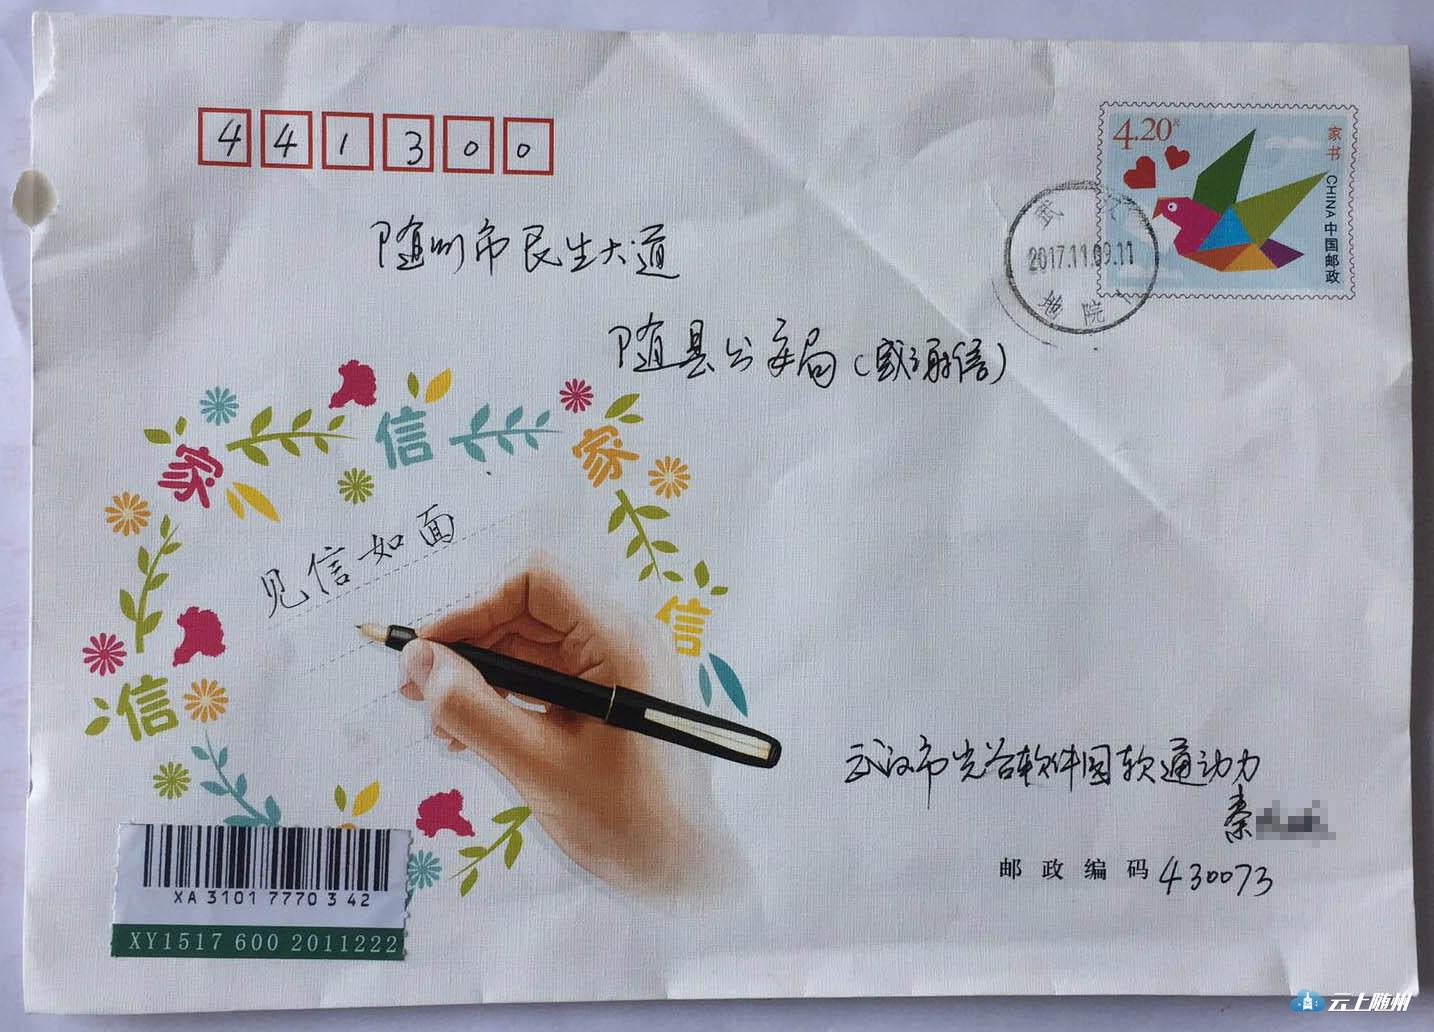 441300
4.20元
家书
CHINA 中国邮政
武汉
2017.11.09.11
院
随州市民生大道
随县公安局（感谢信）
家信家信信
见信如面
武汉市光谷软件园软通动力
秦
邮政编码 430073
XA 3101 7770 3 42
XY1517 600 2011222
云上随州